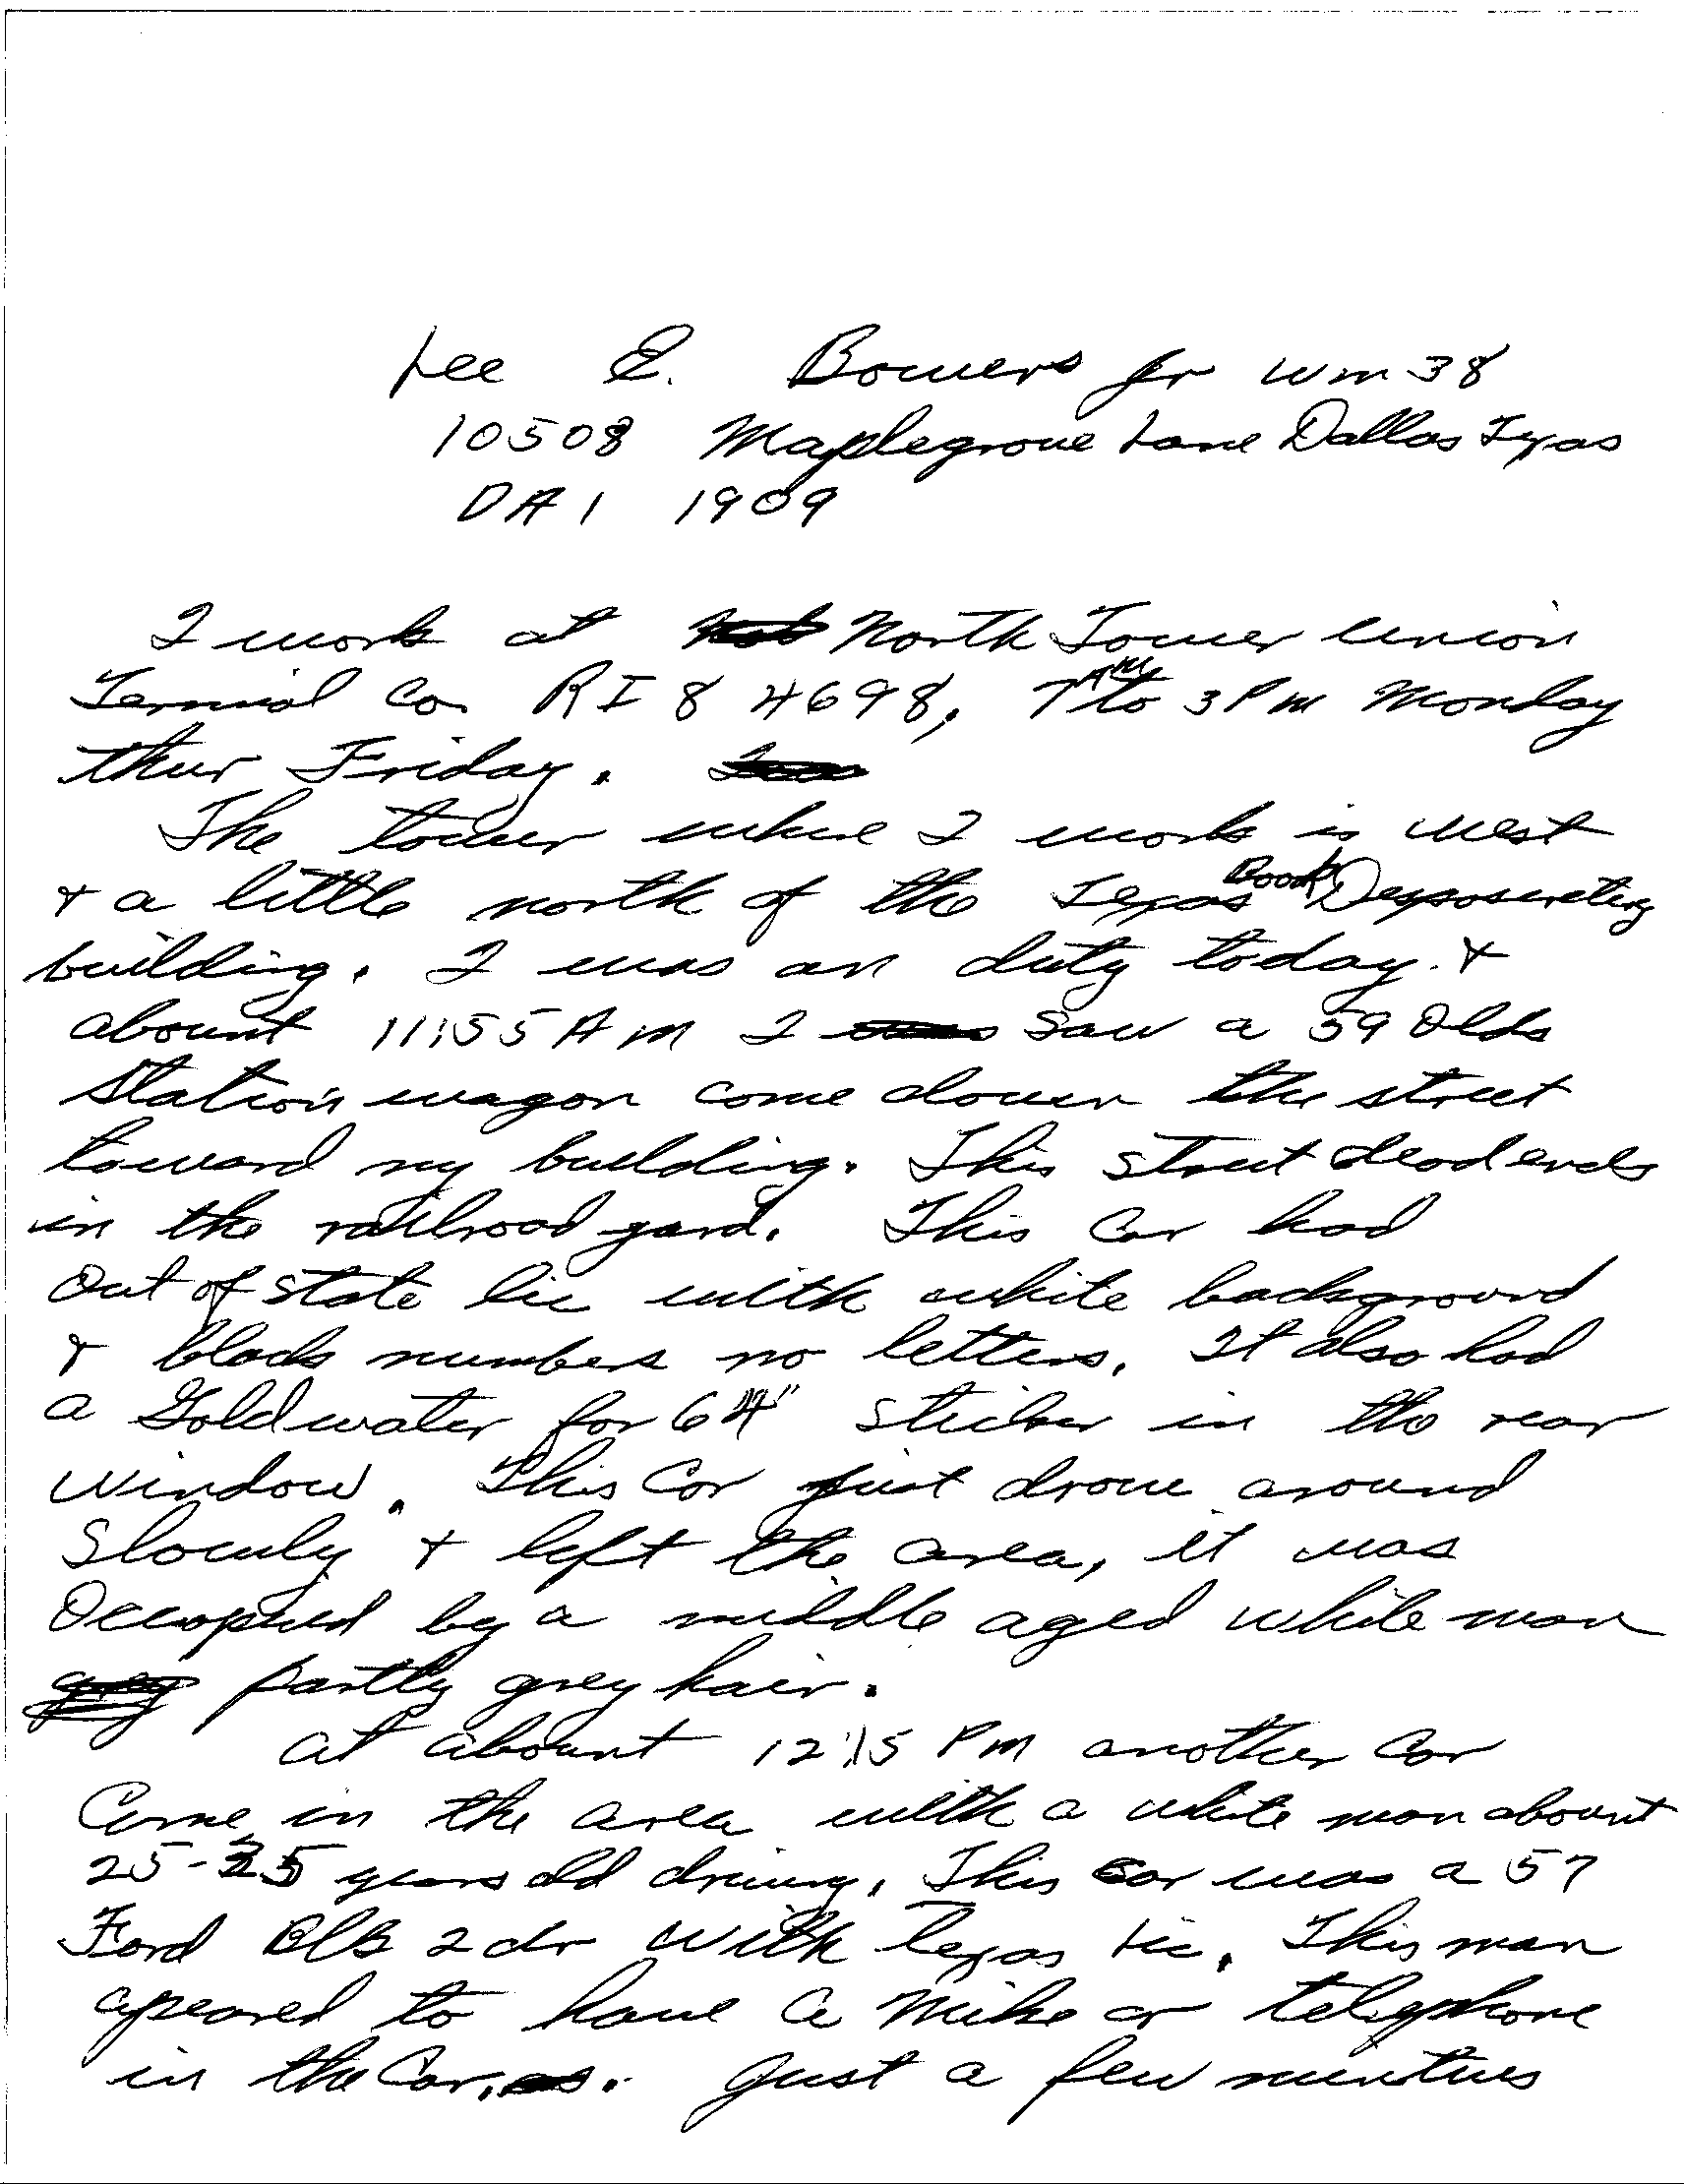 Lee E. Bowers Jr wm 38
10508 Maplegrove Lane Dallas Texas
DA1 1909
I work at North Tower Union
Termial Co. RI 8 4698, 7 AM to 3 Pm Monday
thur Friday.
The tower where I work is west
+ a little north of the Texas Book Desposuretory
building. I was on duty today. +
abount 11:55 Am I saw a 59 Olds
Station wagon come down the street
toward my building. This street deadends
in the railroad yard. This Car had
Out of state lic with white background
+ black numbers no letters. It also had
a Goldwater for 64" sticker in the rear
window. This Car just drove around
Slowly + left the area, it was
Occopied by a middle aged white man
partly grey hair.
at abount 12:15 Pm another Car
Came in the area with a white man abount
25-35 years old driving. This Car was a 57
Ford Blk 2dr with Texas Lic. This man
apeared to have a Mike or telephone
in the Car. Just a few minutues